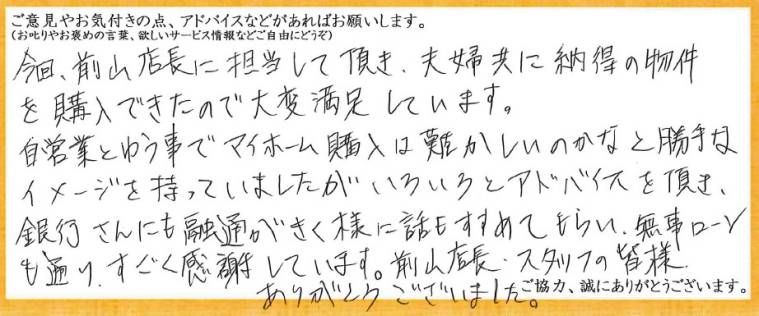 ご意見やお気付きの点、アドバイスなどがあればお願いします。
(お叱りやお褒めの言葉、欲しいサービス情報などご自由にどうぞ)
今回、前山店長に担当して頂き、夫婦共に納得の物件
を購入できたので大変満足しています。
自営業とゆう事でマイホーム購入は難かしいのかなと勝手な
イメージを持っていましたがいろいろとアドバイスを頂き、
銀行さんにも融通がきく様に話もすすめてもらい、無事ローン
も通り、すごく感謝しています。前山店長、スタッフの皆様
ありがとうございました。
ご協力、誠にありがとうございます。